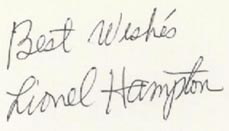 Best Wishes
Lionel Hampton